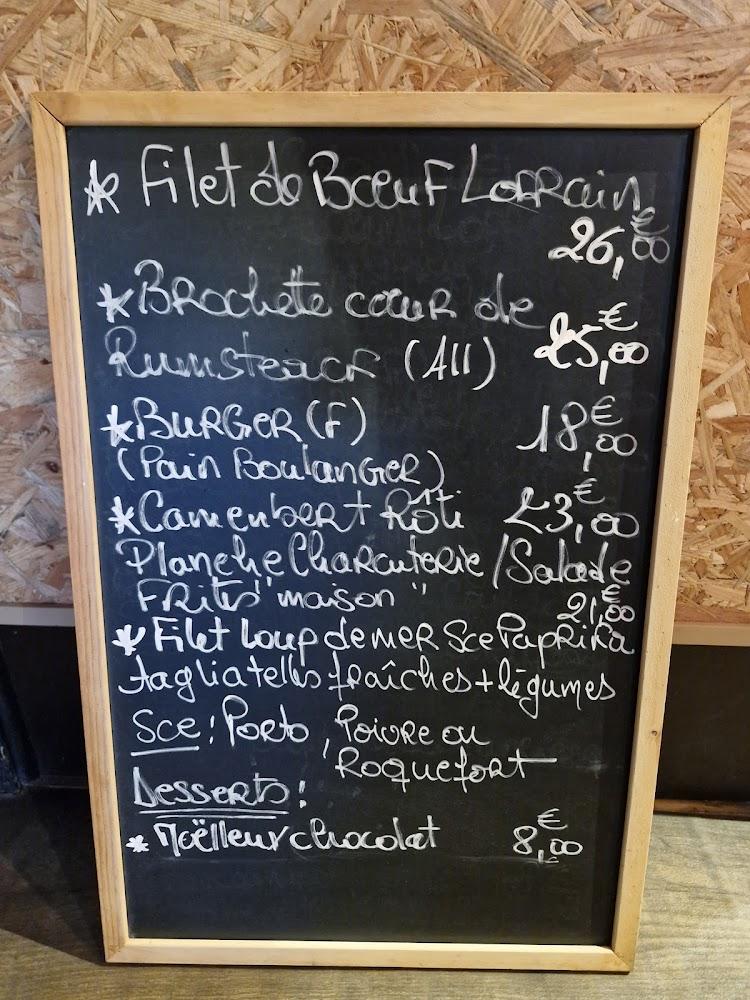 * Filet de Bœuf Lorrain
26,00 €
* Brochette cœur de
Rumsteack (All) 25,00 €
* Burger (F) 18,00 €
(Pain Boulanger)
* Camembert Rôti 23,00 €
Planche Charcuterie / Salade
Frites "maison"
21,00 €
* Filet Loup de mer Sce Paprika
tagliatelles fraîches + légumes
Sce : Porto, Poivre ou
Roquefort
Desserts :
* Moëlleux chocolat 8,00 €